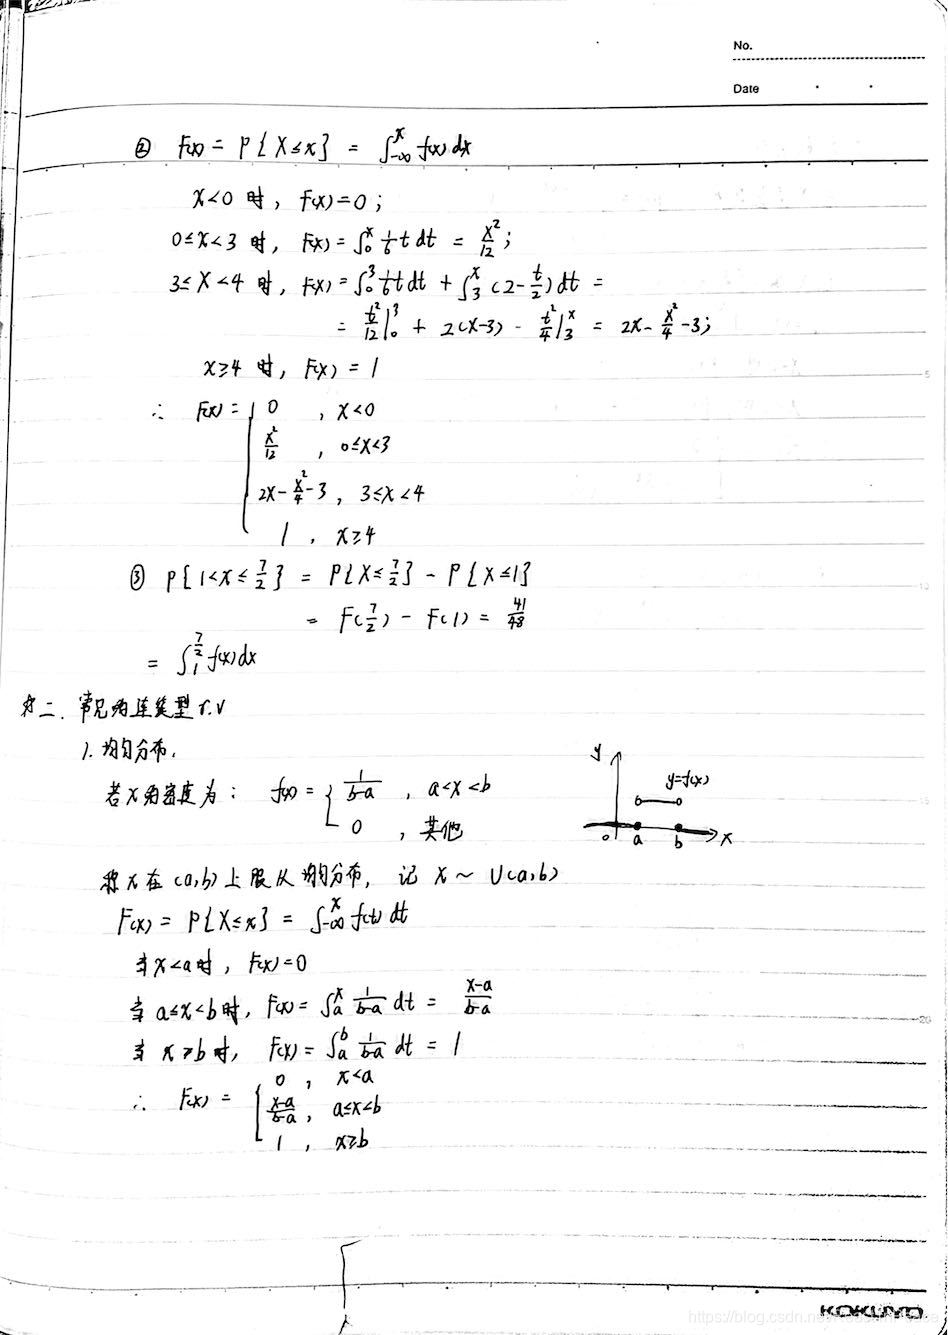 No.
Date
② F(x) = P{X≤x} = ∫_{-∞}^{x} f(x)dx
x<0 时, F(x)=0;
0≤x<3 时, F(x)=∫_0^x 1/6 t dt = x²/12;
3≤x<4 时, F(x)=∫_0^3 1/6 t dt + ∫_3^x (2-t/2)dt =
= t²/12|_0^3 + 2(x-3) - t²/4|_3^x = 2x-x²/4-3;
x≥4 时, F(x)=1
∴ F(x)= { 0 , x<0
x²/12 , 0≤x<3
2x-x²/4-3, 3≤x<4
1 , x≥4
5
③ P{1<x≤7/2} = P{X≤7/2} - P{X≤1}
10
= F(7/2) - F(1) = 41/48
= ∫_1^{7/2} f(x)dx
☆二. 常见的连续型r.v
1. 均匀分布.
若X的密度为: f(x)= { 1/(b-a) , a<x<b
0 , 其他
y
y=f(x)
o a b x
15
称X在(a,b)上服从均匀分布, 记 X~U(a,b)
F(x) = P{X≤x} = ∫_{-∞}^{x} f(t)dt
当x<a时, F(x)=0
当a≤x<b时, F(x)=∫_a^x 1/(b-a) dt = (x-a)/(b-a)
20
当x≥b时, F(x)=∫_a^b 1/(b-a) dt = 1
∴ F(x)= { 0 , x<a
(x-a)/(b-a), a≤x<b
1 , x≥b
KOKUYO